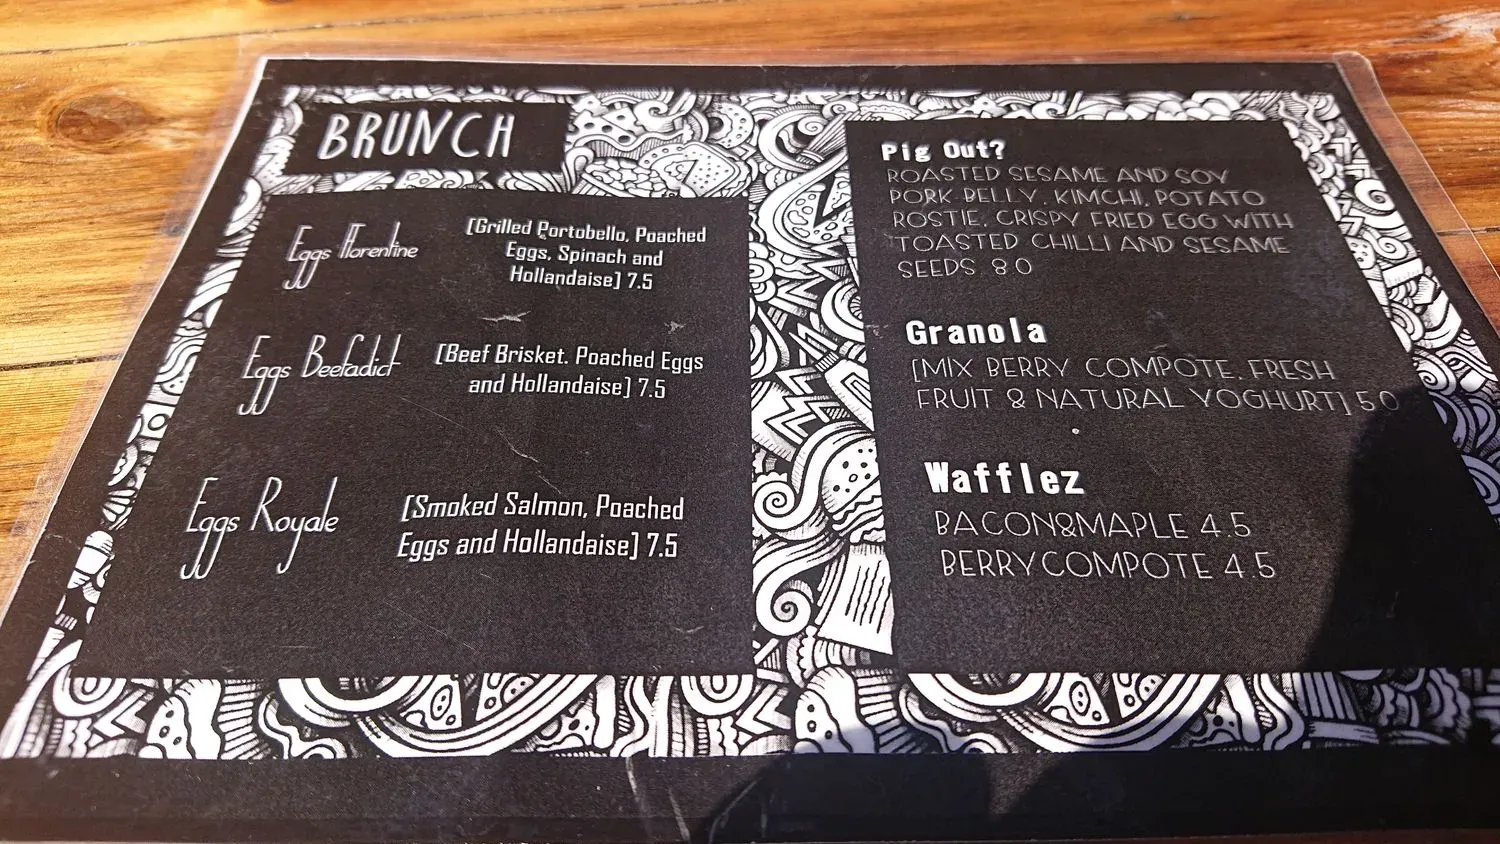 BRUNCH
Eggs Florentine
[Grilled Portobello, Poached
Eggs, Spinach and
Hollandaise] 7.5
Eggs Beefadict
[Beef Brisket. Poached Eggs
and Hollandaise] 7.5
Eggs Royale
[Smoked Salmon, Poached
Eggs and Hollandaise] 7.5
Pig Out?
ROASTED SESAME AND SOY
PORK BELLY, KIMCHI, POTATO
ROSTIE, CRISPY FRIED EGG WITH
TOASTED CHILLI AND SESAME
SEEDS 8.0
Granola
[MIX BERRY COMPOTE, FRESH
FRUIT & NATURAL YOGHURT] 5.0
Wafflez
BACON&MAPLE 4.5
BERRYCOMPOTE 4.5